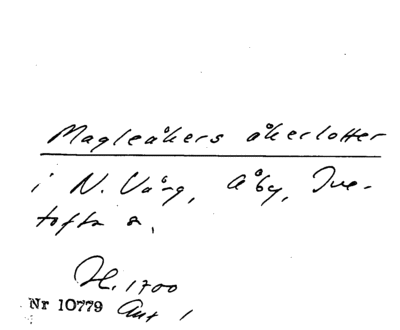 Magleåkers åkerlotter
i N. Vång, Åby, Tve-
tofta s.
H. 1700
Nr 10779 Ant 1